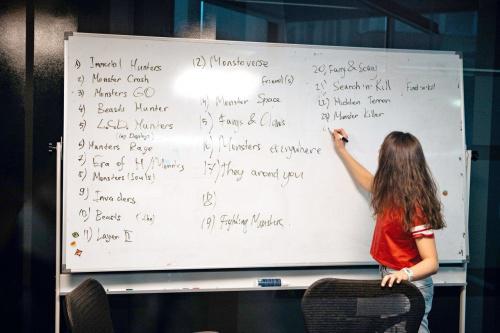 1) Immortal Hunters
2) Monster Crash
3) Monsters GO
4) Beasts Hunter
5) Hunters
6) Hunters Rage
7) Era of
8) Monsters (Souls)
9) Invaders
10) Beasts (like)
11) Layer II
12) Monstoverse
friend(s)
14) Monster Space
15) Fangs & Claws
16) Monsters everywhere
17) They around you
18)
19) Fighting Monsters
20) Fangs &
21) Search 'n' Kill
22) Hidden Terror
23) Monster Killer